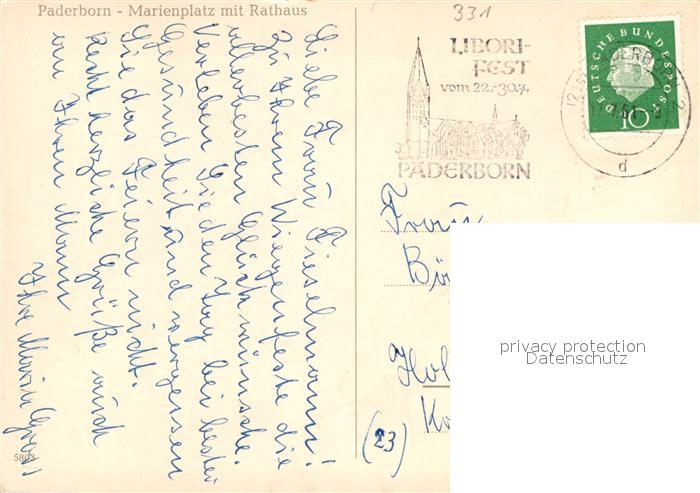 Paderborn - Marienplatz mit Rathaus
331
LIBORI-
FEST
vom 22.-30.7.
PADERBORN
DEUTSCHE BUNDESPOST
10
d
Liebe Frau Fieselmann!
Zu Ihrem Wiegenfeste die
allerbesten Glückwünsche.
Verleben Sie den Tag bei bester
Gesundheit und vergessen
Sie das Feiern nicht.
Recht herzliche Grüße auch
an Ihren Mann
Ihre Maria
Frau
Hol
(23)
privacy protection
Datenschutz